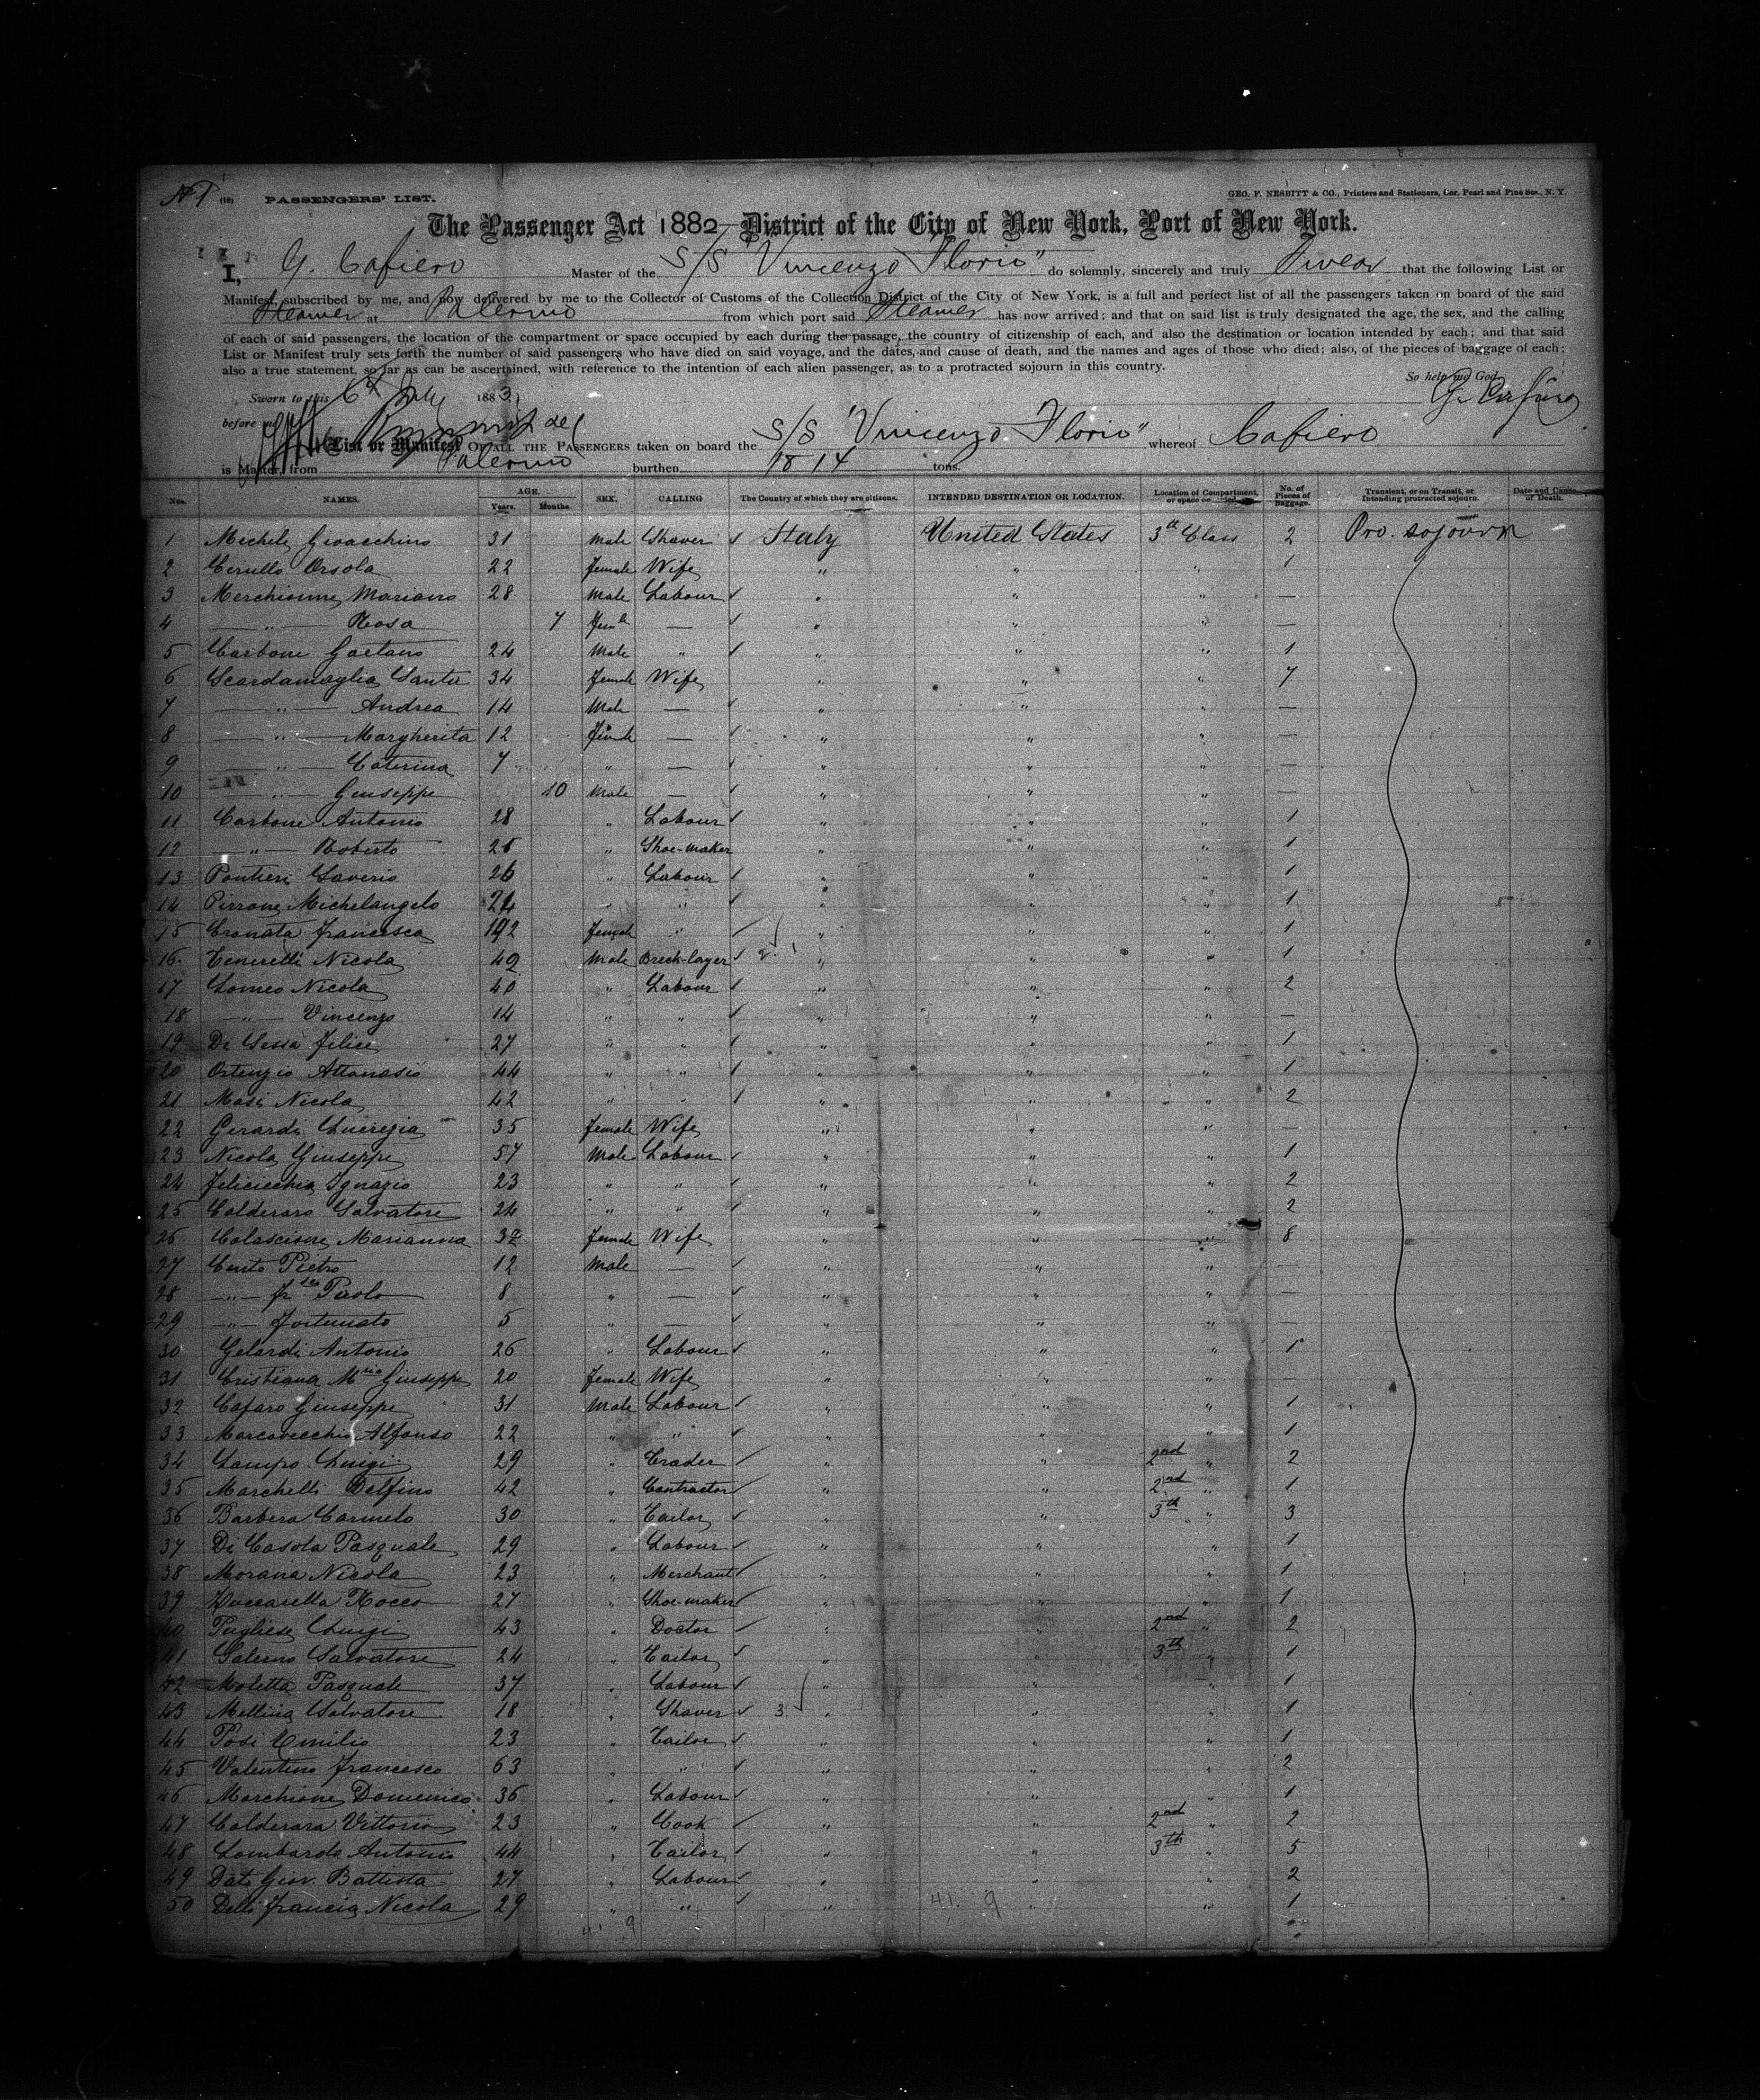 No 1 (10) PASSENGERS' LIST. GEO. F. NESBITT & CO., Printers and Stationers, Cor. Pearl and Pine Sts., N. Y.
The Passenger Act 1882 District of the City of New York, Port of New York.
I, G. Cafiero Master of the S/S "Vincenzo Florio" do solemnly, sincerely and truly Swear that the following List or
Manifest, subscribed by me, and now delivered by me to the Collector of Customs of the Collection District of the City of New York, is a full and perfect list of all the passengers taken on board of the said
Steamer at Palermo from which port said Steamer has now arrived; and that on said list is truly designated the age, the sex, and the calling
of each of said passengers, the location of the compartment or space occupied by each during the passage, the country of citizenship of each, and also the destination or location intended by each; and that said
List or Manifest truly sets forth the number of said passengers who have died on said voyage, and the dates, and cause of death, and the names and ages of those who died; also, of the pieces of baggage of each;
also a true statement, so far as can be ascertained, with reference to the intention of each alien passenger, as to a protracted sojourn in this country.
So help me God
Sworn to this 6th July 1883 G. Cafiero
before me
List or Manifest OF ALL THE PASSENGERS taken on board the S/S "Vincenzo Florio" whereof Cafiero
is Master, from Palermo burthen 1814 tons.
Nos. NAMES. AGE. Years. Months. SEX. CALLING The Country of which they are citizens. INTENDED DESTINATION OR LOCATION. Location of Compartment, or space occupied. No. of Pieces of Baggage. Transient, or on Transit, or Intending protracted sojourn. Date and Cause of Death.
1 Michele Gioacchino 31 Male Shaver Italy United States 3th Class 2 Pro. sojourn
2 Cerullo Orsola 22 female Wife " " " 1
3 Merchionne Mariano 28 Male Labour " " " —
4 — " — Rosa 7 — " " " —
5 Carbone Gaetano 24 Male " " " " 1
6 Scardamaglia Santa 34 female Wife " " " 7
7 — " — Andrea 14 Male — " " " —
8 — " — Margherita 12 — " " " —
9 — " — Caterina 7 " — " " " —
10 — " — Giuseppe 10 Male — " " " —
11 Carbone Antonio 28 " Labour " " " 1
12 — " — Roberto 25 " Shoe-maker " " " 1
13 Pontieri Saverio 26 " Labour " " " 1
14 Pirrone Michelangelo 24 " " " " " 1
15 Francesca female " " " " 1
16 Tenerelli Nicola 42 Male Breck-layer " " " 1
17 Lomeo Nicola 40 " Labour " " " 2
18 — " — Vincenzo 14 " " " " " —
19 De Sessa Felice 27 " " " " " 1
20 Ortenzio Attanasio 44 " " " " " 1
21 Masi Nicola 42 " " " " " 2
22 Gerardi Lucrezia 35 female Wife " " " —
23 Nicola Giuseppe 57 Male Labour " " " 1
24 Feliciechia Ignazio 23 " " " " " 2
25 Calderaro Salvatore 24 " " " " " 2
26 Colascione Marianna 32 female Wife " " " 8
27 Cento Pietro 12 Male — " " " —
28 — " — Paolo 8 " — " " " —
29 — " — Fortunato 5 " — " " " —
30 Gelardi Antonio 26 " Labour " " " 1
31 Cristiana Mria Giuseppe 20 female Wife " " " —
32 Cafaro Giuseppe 31 Male Labour " " " 1
33 Marcovecchio Alfonso 22 " " " " " 1
34 Lampo Luigi 29 " Trader " " 2nd " 2
35 Marchelli Delfino 42 " Contractor " " 2nd " 1
36 Barbera Carmelo 30 " Tailor " " 3th " 3
37 Di Casola Pasquale 29 " Labour " " " 1
38 Morana Nicola 23 " Merchant " " " 1
39 Zuccarella Rocco 27 " Shoe-maker " " " 1
40 Pugliese Luigi 43 " Doctor " " 2nd " 2
41 Salerno Salvatore 24 " Tailor " " 3th " 1
42 Moletta Pasquale 37 " Labour " " " 1
43 Mellina Salvatore 18 " Shaver " " " 1
44 Posi Emilio 23 " Tailor " " " 1
45 Valentino Francesco 63 " " " " " 2
46 Marchione Domenico 36 " Labour " " " 1
47 Calderara Vittorio 23 " Cook " " 2nd " 2
48 Lombardo Antonio 44 " Tailor " " 3th " 5
49 Dato Giov. Battista 27 " Labour " " " 2
50 Delli Francia Nicola 29 " " " " " 1
41. 9
41. 9